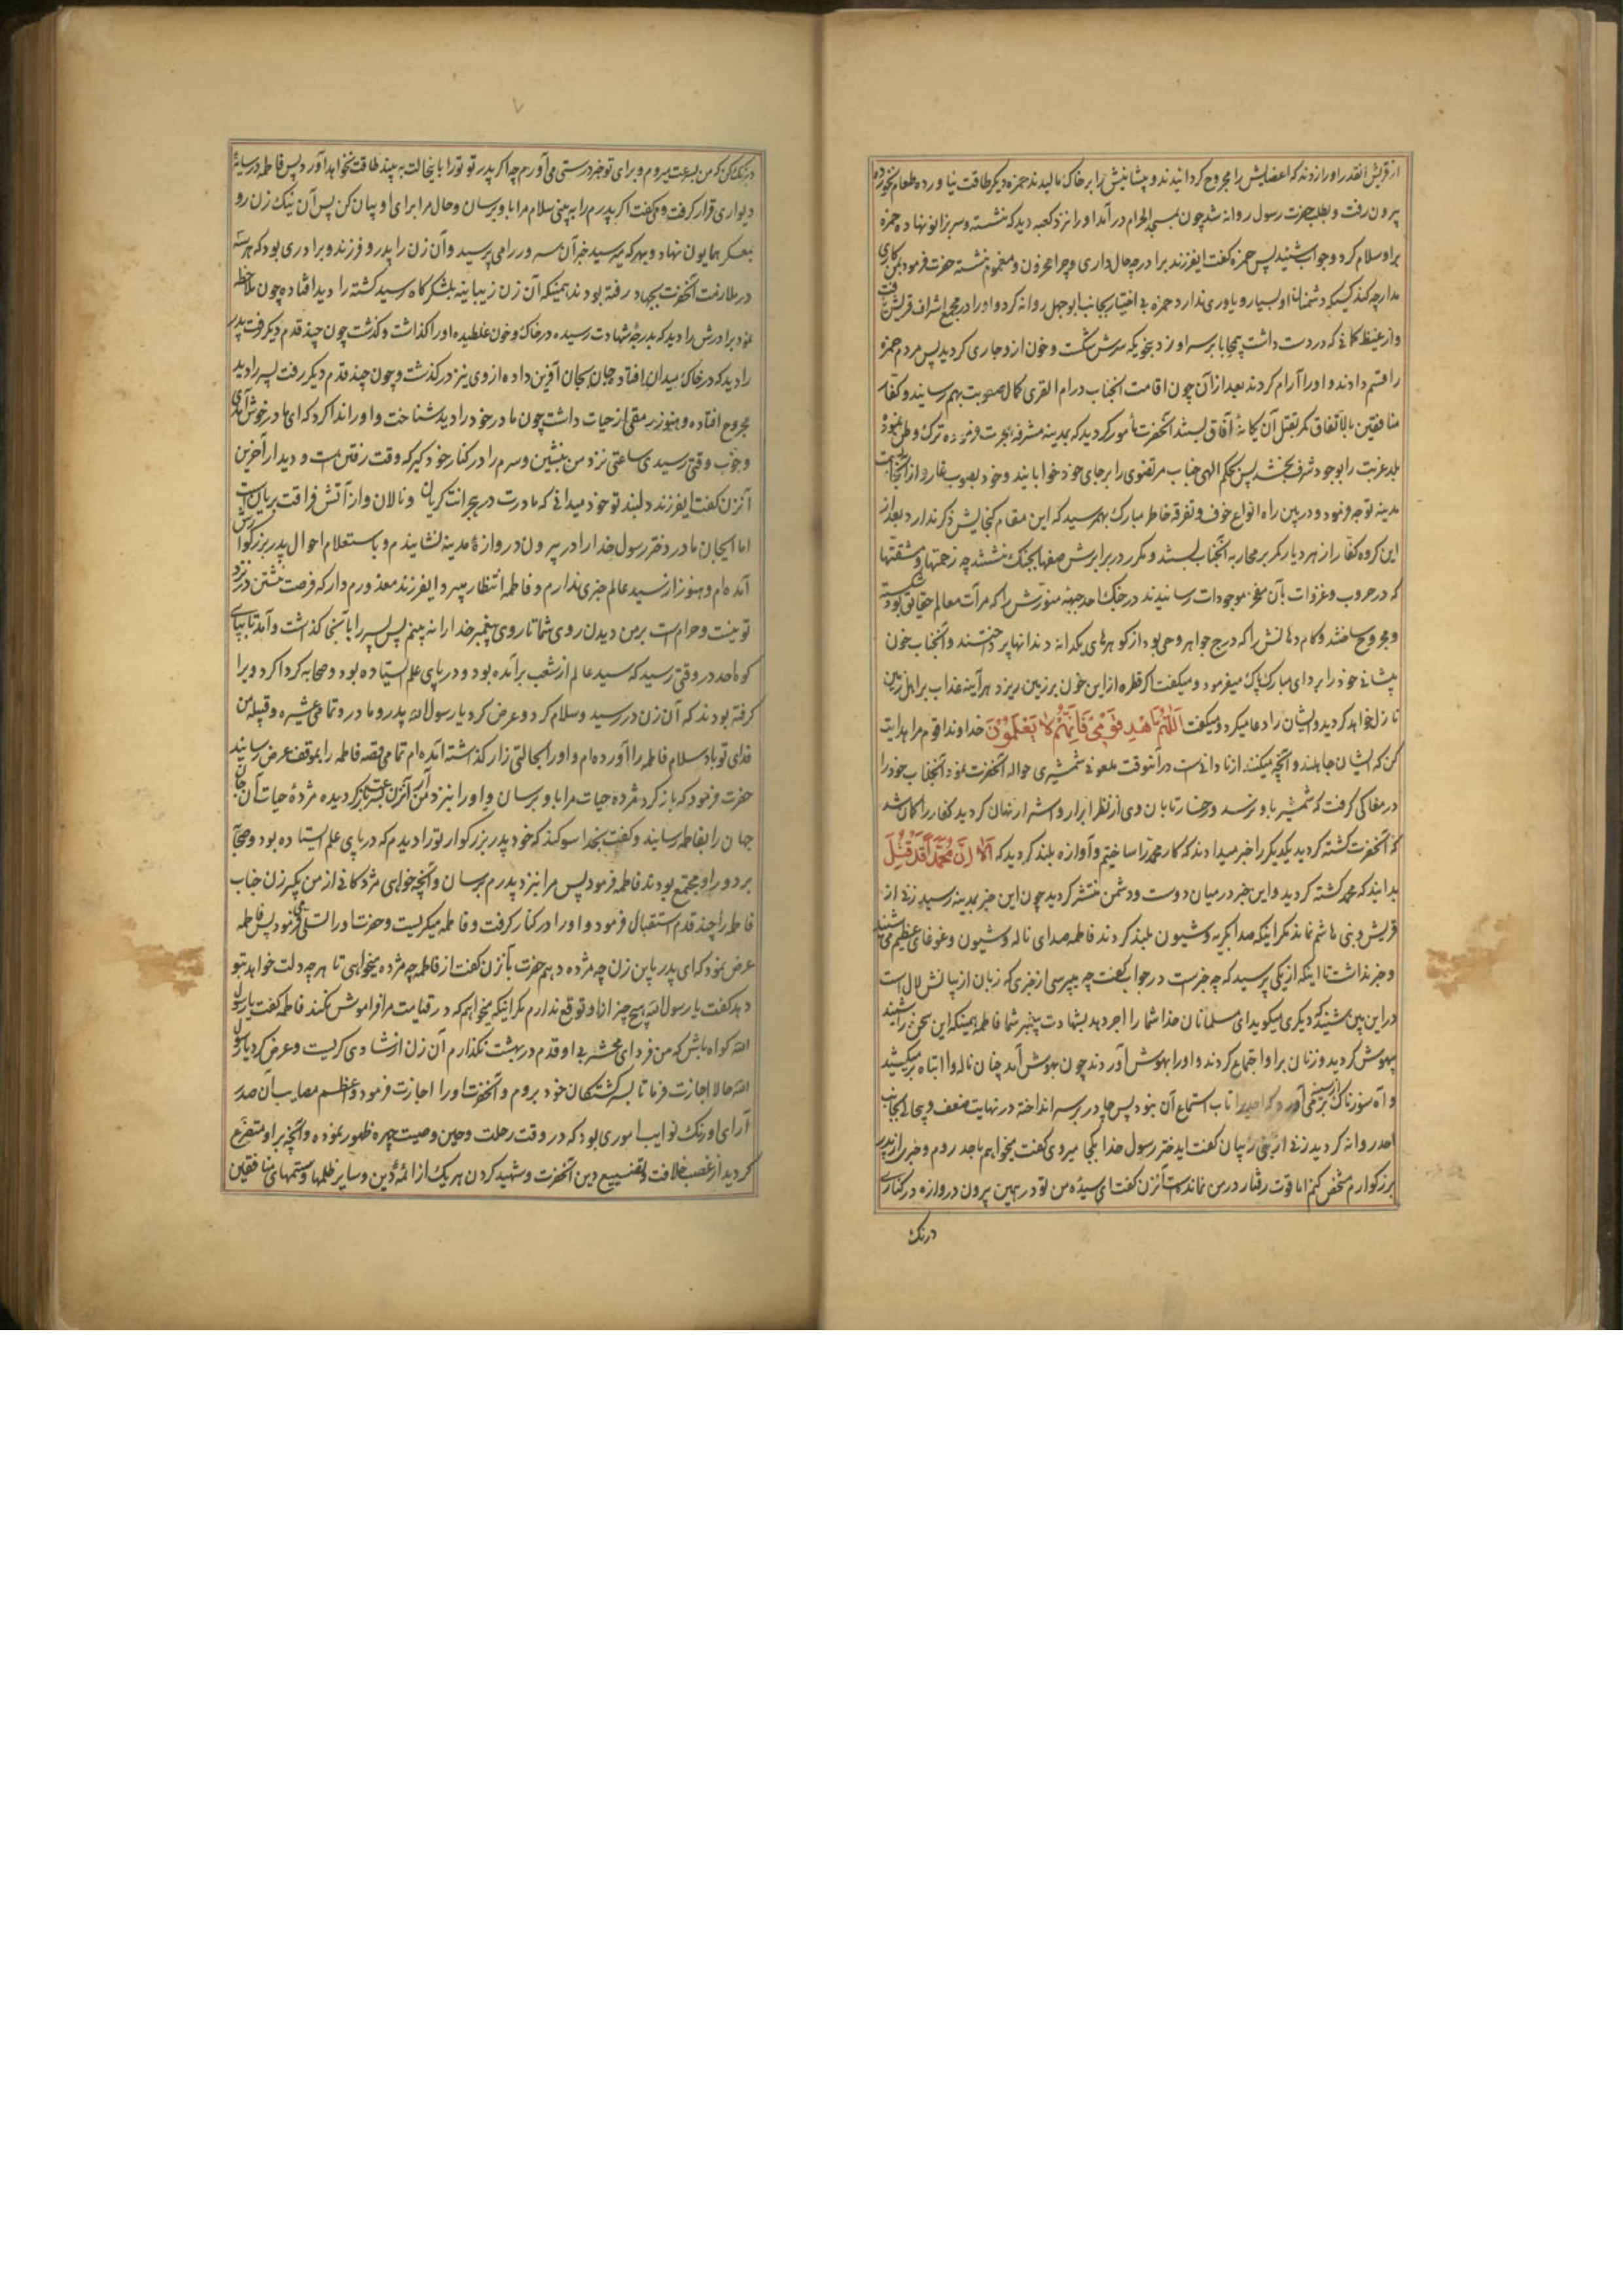 از قریش آنقدر او را زدند که اعضایش را مجروح کردانیدند و پیشانیش را بر خاک مالیدند حمزه دیکر طاقت نیاورده طعام نخورده
بیرون رفت و بطلب حضرت رسول روانه شد چون بمسجد الحرام درآمد او را نزد کعبه دید که نشسته و سر بزانو نهاده حمزه
بر او سلام کرد و جواب شنید پس حمزه کفت ایفرزند برادر چه حال داری و چرا محزون و مغموم نشسته حضرت فرمود
چه کند کسیکه دشمنان او بسیار و یاوری ندارد حمزه بی اختیار بجانب ابوجهل روانه کرد و او را در مجمع اشراف قریش
و از غیظ کمانی که در دست داشت بر سر او زد بنحویکه سرش شکست و خون از او جاری کردید پس مردم حمزه
را قسم دادند و او را آرام کردند بعد از آن چون اقامت آنجناب در ام القری کمال صعوبت بهم رسانید و کفار
منافقین بالاتفاق کمر بقتل آن یکانهٔ آفاق بستند آنحضرت مأمور کردید که بمدینه مشرفه هجرت فرموده ترک وطن نموده
بلد غربت را بوجود شرف بخشد پس بحکم الهی جناب مرتضوی را بر جای خود خوابانید و خود بصوب غار و از آنجا
مدینه توجه فرمود و در بین راه انواع خوف و تفرقه خاطر مبارک بهم رسید که این مقام کنجایش ذکر ندارد بعد از
این کروه کفار از هر دیار کمر بر محاربه آنجناب بستند و مکرر در برابرش صفها بجنک نشستند چه زحمتها و مشقتها
که در حروب و غزوات بآن مفخر موجودات رسانیدند در جنک احد جبههٔ منورش را که مرآت معالم حقایق بود شکسته
و مجروح ساختند و کام و دهانش را که درج جواهر وحی بود از کوهرهای یکدانه دندانها پرداختند و آنجناب خون
پیشانی خود را بردای مبارک پاک میفرمود و میکفت اکر قطره از این خون بر زمین ریزد هر آینه عذاب بر اهل زمین
نازل خواهد کردید و ایشان را دعا میکرد و میکفت اَللّٰهُمَّ اهْدِ قَوْمِی فَاِنَّهُمْ لَا یَعْلَمُوْنَ خداوندا قوم مرا هدایت
کن که ایشان جاهلند و آنچه میکنند از نادانی است در آنوقت ملعونی شمشیری حواله آنحضرت نمود آنجناب خود را
در مغاکی کرفت که شمشیر باو نرسد و رخسار تابان وی از نظر ابرار و اشرار نهان کردید کفار را کمان شد
که آنحضرت کشته کردید یکدیکر را خبر میدادند که کار محمد را ساختیم و آوازه بلند کردید که اَلَا اِنَّ مُحَمَّدًا قَدْ قُتِلَ
بدانید که محمد کشته کردید و این خبر در میان دوست و دشمن منتشر کردید چون این خبر بمدینه رسید زنی از
قریش و بنی هاشم نماند مکر اینکه صدا بکریه و شیون بلند کردند فاطمه صدای ناله و شیون و غوغای عظیم می شنید
و خبر نداشت تا اینکه از یکی پرسید که چه خبر است در جواب کفت چه میپرسی از خبری که زبان از بیانش لال است
در این بین شنید که دیکری میکوید ای مسلمانان خدا شما را اجر دهد بشهادت پیغمبر شما فاطمه همینکه این سخن را شنید
بیهوش کردید و زنان بر او اجتماع کردند و او را بهوش آوردند چون بهوش آمد چنان ناله وا ابتاه بر میکشید
و آه سوزناک از سینه بر می آورد که احدی را تاب استماع آن نبود پس چادر بر سر انداخته در نهایت ضعف و بیحالی بجانب
احد روانه کردید زنی از بنی ذبیان کفت ای دختر رسول خدا بکجا میروی کفت میخواهم باحد روم و خبری از پدر
بزرکوارم مشخص کنم اما قوت رفتار در من نمانده است آنزن کفت ای سیده من تو در همین بیرون دروازه در کناری
درنک
درنک کن که من بسرعت میروم و برای تو خبر درستی می آورم چه اکر پدر تو تو را باینحالت به بیند طاقت نخواهد آورد پس فاطمه در سایهٔ
دیواری قرار کرفت و کفت اکر پدرم را به بینی سلام مرا باو برسان و حال مرا برای او بیان کن پس آن نیک زن رو
بمعسکر همایون نهاد و بهر که میرسید خبر آن سرور را می پرسید و آن زن را پدر و فرزند و برادری بود که هر سه
در ملازمت آنحضرت بجهاد رفته بودند همینکه آن زن بلشکرکاه رسید کشته را دید افتاده چون ملاحظه
نمود برادرش را دید که بدرجهٔ شهادت رسیده در خاک و خون غلطیده او را کذاشت و کذشت چون چند قدم دیکر رفت پدر
را دید که در خاک میدان افتاده جان بجان آفرین داده از وی نیز در کذشت و چون چند قدم دیکر رفت پسر را دید
مجروح افتاده و هنوز رمقی از حیات داشت چون مادر خود را دید شناخت و او را ندا کرد که ای مادر خوش آمدی
و خوب وقتی رسیدی ساعتی نزد من بنشین و سرم را در کنار خود کیر که وقت رفتن است و دیدار آخرین
آنزن کفت ایفرزند دلبند تو خود میدانی که مادرت در هجرانت کریان و نالان و از آتش فراقت بریان است
اما ایجان مادر دختر رسول خدا را در بیرون دروازهٔ مدینه نشانیدم و باستعلام احوال پدر بزرکوارش
آمده ام و هنوز از سید عالم خبری ندارم و فاطمه انتظار میبرد ایفرزند معذورم دار که فرصت نشستن در نزد
تو نیست و حرام است بر من دیدن روی شما تا روی پیغمبر خدا را نه بینم پس پسر را بآنجا کذاشت و آمد تا بپای
کوه احد در وقتی رسید که سید عالم از شعب برآمده بود و در پای علم ایستاده بود و صحابه کرداکرد او را
کرفته بودند که آن زن در رسید و سلام کرد و عرض کرد یا رسول الله پدر و مادر و تمامی عشیره و قبیله من
فدای تو باد سلام فاطمه را آورده ام و او را بحالتی زار کذاشته آمده ام تمامی قصه فاطمه را بموقف عرض رسانید
حضرت فرمود که باز کرد مژده حیات مرا باو برسان و او را نزد من آر آنزن بسرعت باز کردیده مژدهٔ حیات آن جان
جهان را بفاطمه رسانید و کفت بخدا سوکند که خود پدر بزرکوار تو را دیدم که در پای علم ایستاده بود و صحابه
بر دور او مجتمع بودند فاطمه فرمود پس مرا بنزد پدرم برسان و آنچه خواهی مژدکانی از من بکیر زن جناب
فاطمه را چند قدم استقبال فرمود و او را در کنار کرفت و فاطمه میکریست و حضرت او را تسلی می فرمود پس فاطمه
عرض نمود که ای پدر باین زن چه مژده دهیم حضرت بآنزن کفت از فاطمه چه مژده میخواهی تا هرچه دلت خواهد بتو
دهد کفت یا رسول الله هیچ چیز از او توقع ندارم مکر اینکه میخواهم که در قیامت مرا فراموش نکند فاطمه کفت یا رسول
الله کواه باش که من فردای محشر بی او قدم در بهشت نکذارم آن زن از شادی کریست و عرض کرد یا رسول
الله حالا اجازت فرما تا بسر کشتکان خود بروم و آنحضرت او را اجازت فرمود و اعظم مصایب آن صدر
آرای اورنک نوایب اموری بود که در وقت رحلت و حین وصیت چهره ظهور نموده و آنچه بر او متفرع
کردید از غصب خلافت و تضییع دین آنحضرت و شهید کردن هر یک از ائمهٔ دین و سایر ظلمها و ستمهای منافقین